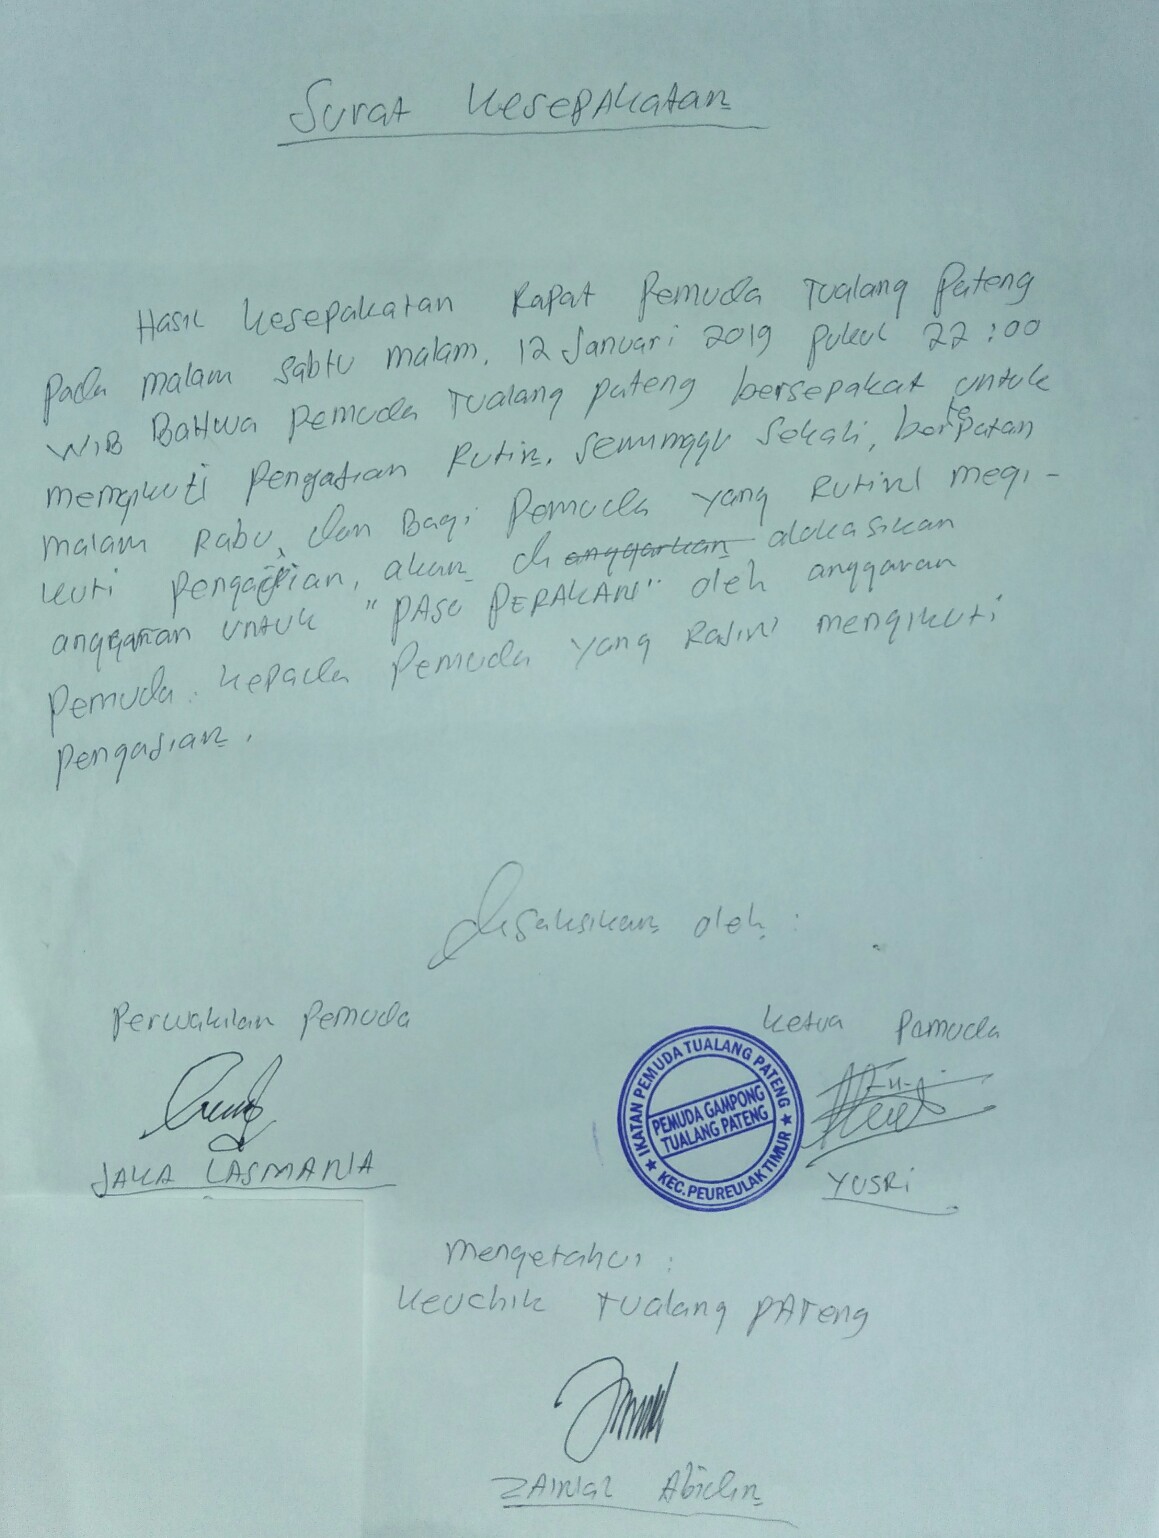 Surat Kesepakatan
Hasil Kesepakatan Rapat Pemuda Tualang Pateng
pada malam sabtu malam, 12 Januari 2019 pukul 22:00
WIB Bahwa Pemuda Tualang pateng bersepakat untuk
mengikuti Pengajian Rutin, seminggu Sekali, bertepatan
malam Rabu, dan Bagi Pemuda yang Rutin megi-
kuti pengajian, akan di anggarkan alokasikan
anggaran untuk "PASU PERAKAN" oleh anggaran
Pemuda. Kepada Pemuda yang Rajin mengikuti
Pengajian.
disaksikan oleh :
Perwakilan Pemuda
Ketua Pemuda
IKATAN PEMUDA TUALANG PATENG
PEMUDA GAMPONG
TUALANG PATENG
KEC.PEUREULAK TIMUR
JAKA LASMANA
YUSRi
Mengetahui :
Keuchik Tualang PATeng
ZAINAL Abidin